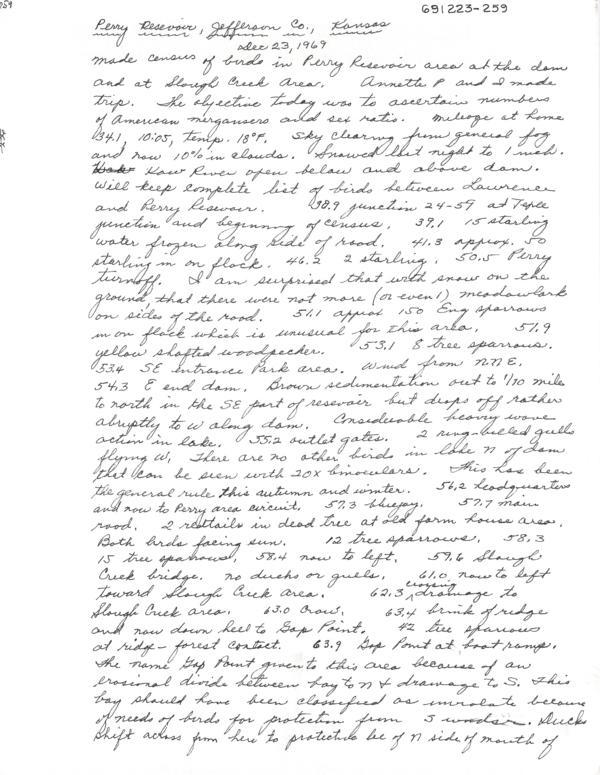 691223-259
Perry Resevoir, Jefferson Co., Kansas
Dec 23, 1969
Made census of birds in Perry Resevoir area at the dam
and at Slough Creek Area. Annette P and I made
trip. The objective today was to ascertain numbers
of American mergansers and sex ratio. Mileage at home
34.1, 10:05, temp. 18°F. Sky clearing from general fog
and now 10% in clouds. Snowed last night to 1 inch.
Kaw River open below and above dam.
Will keep complete list of birds between Lawrence
and Perry Resevoir. 38.9 junction 24-59 at Tepee
junction and beginning of census. 39.1 15 starling
water frozen along side of road. 41.3 approx. 50
starling in on flock. 46.2 2 starling. 50.5 Perry
turnoff. I am surprised that with snow on the
ground, that there were not more (or even 1) meadowlark
on sides of the road. 51.1 approx 150 Eng sparrows
in on flock which is unusual for this area. 51.9
yellow shafted woodpecker. 53.1 8 tree sparrows.
53.4 SE entrance Park area. Wind from NNE.
54.3 E end dam. Brown sedimentation out to 1/10 mile
to north in the SE part of resevoir but drops off rather
abruptly to W along dam. Considerable heavy wave
action in lake. 55.2 outlet gates. 2 ring-billed gulls
flying W, There are no other birds in lake N of dam
that can be seen with 20x binoculars. This has been
the general rule this autumn and winter. 56.2 headquarters
and now to Perry area circuit. 57.3 bluejay. 57.7 main
road. 2 redtails in dead tree at old farm house area.
Both birds facing sun. 12 tree sparrows, 58.3
15 tree sparrows, 58.4 now to left. 59.6 Slough
Creek bridge. no ducks or gulls. 61.0 now to left
toward Slough Creek area. 62.3 crossing drainage to
Slough Creek area. 63.0 Crow. 63.4 brink of ridge
and now down hill to Gap Point. 42 tree sparrows
at ridge - forest contact. 63.9 Gap Point at boat ramp.
The name Gap Point given to this area because of an
erosional divide between bay to N & drainage to S. This
bay should have been classified as inviolate because
of needs of birds for protection from S winds. Ducks
shift across from here to protective lee of N side of mouth of